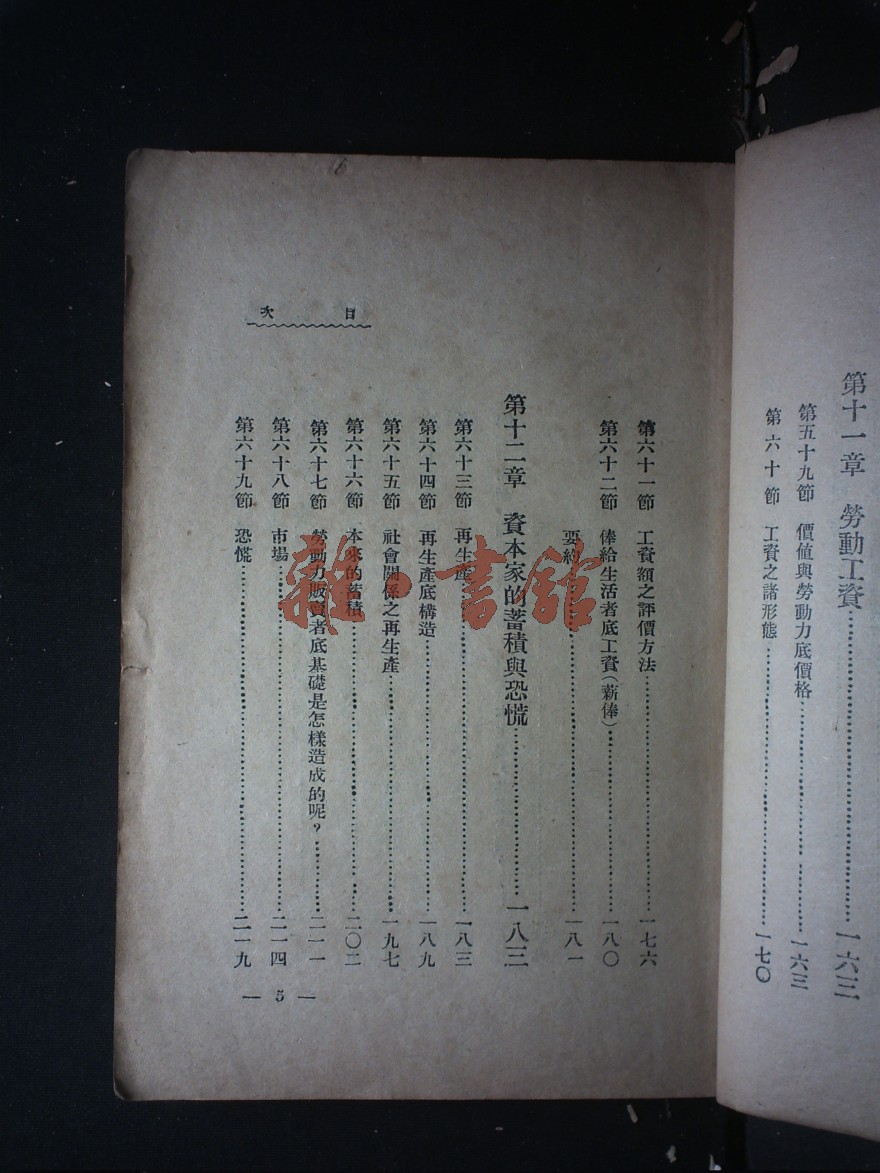 第十一章　勞動工資…………一六三
第五十九節　價値與勞動力底價格…………一六三
第六十節　工資之諸形態…………一七〇
目　次
第六十一節　工資額之評價方法…………一七六
第六十二節　俸給生活者底工資(薪俸)…………一八〇
要約…………一八一
第十二章　資本家的蓄積與恐慌…………一八三
第六十三節　再生產…………一八三
第六十四節　再生產底構造…………一八九
第六十五節　社會關係之再生產…………一九七
第六十六節　本來的蓄積…………二〇二
第六十七節　勞動力販賣者底基礎是怎樣造成的呢？…………二一一
第六十八節　市場…………二一四
第六十九節　恐慌…………二一九
— 5 —
雜·書館